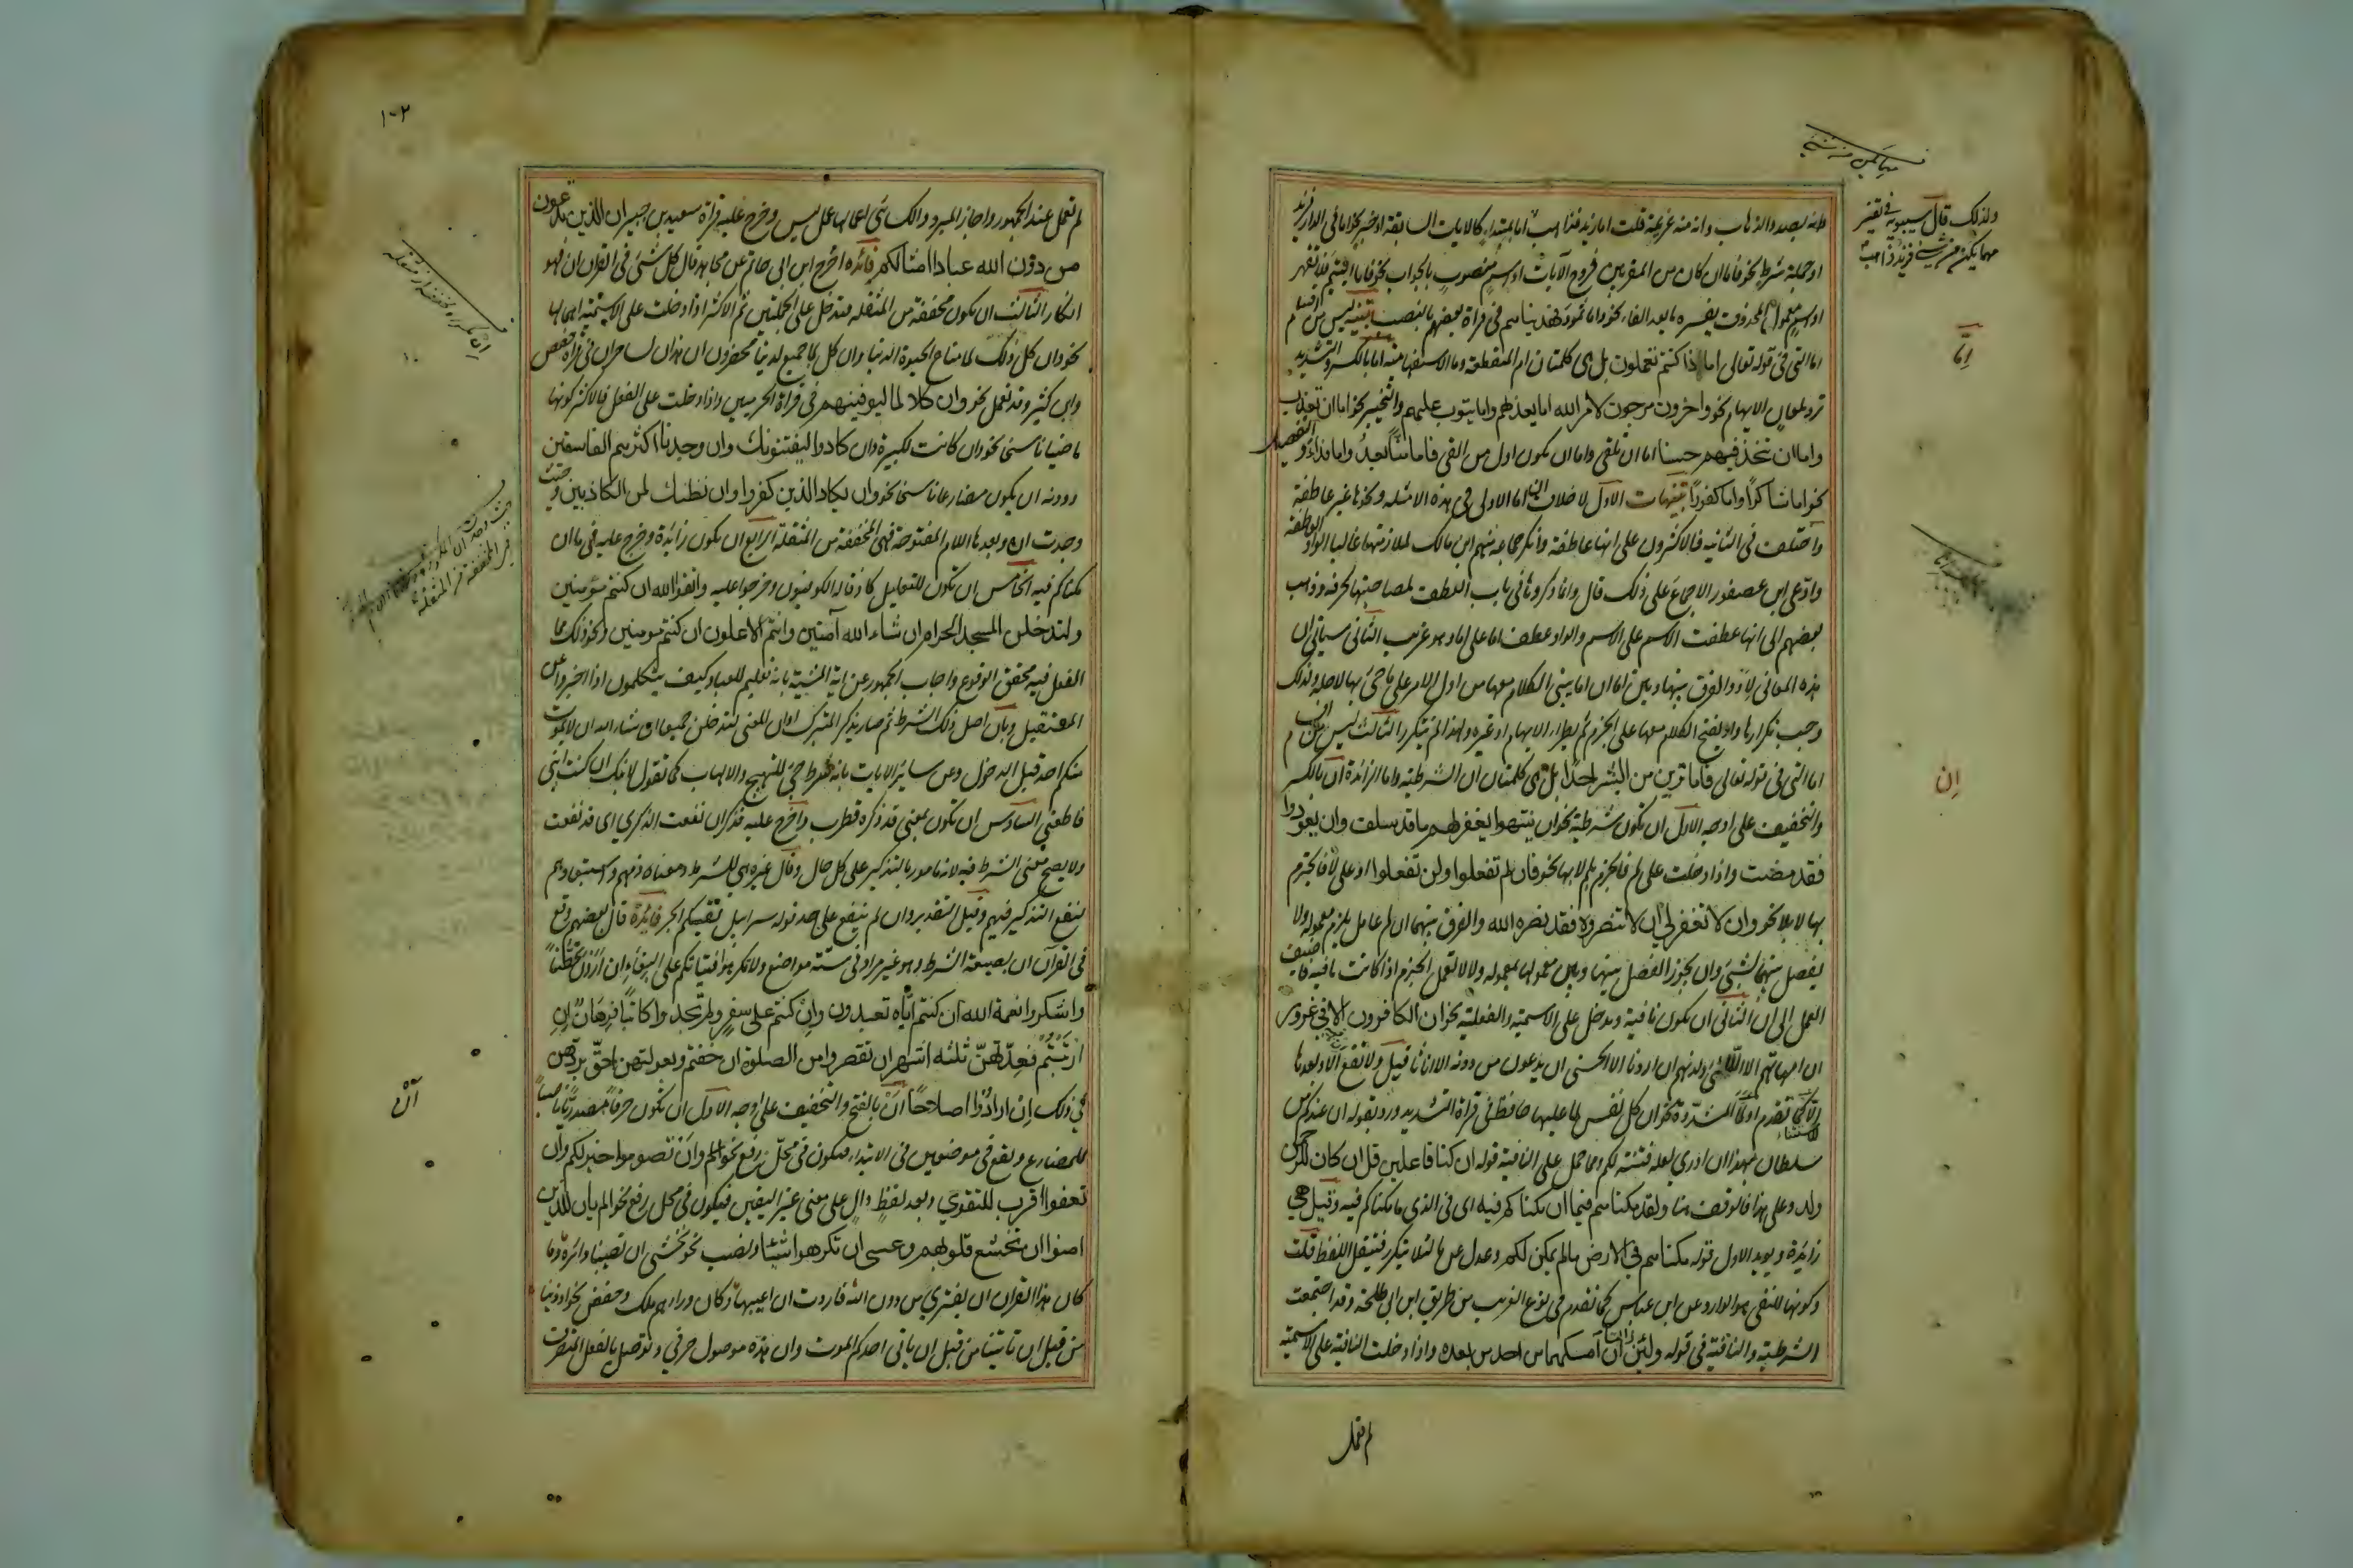 ولذلك قال سيبويه في تفسير
مهما يكن من شيء فزيد ذاهب
انه بصدد الذهاب وانه منه عزيمة قلت اما زيد فذاهب اما بمبتداء كالايات السابقة او خبر نحو اما في الدار فزيد
او جملة شرط نحو فاما ان كان من المقربين فروح الآيات او اسم منصوب بالجواب نحو فاما اليتيم فلا تقهر
او اسم معمول لمحذوف يفسره ما بعد الفاء نحو واما ثمود فهديناهم في قراة بعضهم بالنصب تنبيه ليس من اقسام
اما
اما التي في قوله تعالى اماذا كنتم تعملون بل هي كلمتان ام المنقطعة وما الاستفهامية اما بالكسر والتشديد
ترد لمعان الابهام نحو واخرون مرجون لامر الله اما يعذبهم واما يتوب عليهم والتخيير نحو اما ان تعذب
واما ان تتخذ فيهم حسنا اما ان تلقي واما ان نكون اول من القى فاما منا بعد واما فداء والتفصيل
نحو اما شاكرا واما كفورا تنبيهات الاول لا خلاف ان اما الاولى في هذه الامثلة ونحوها غير عاطفة
واختلف في الثانية فالاكثرون على انها عاطفة وانكر جماعة منهم ابن مالك لملازمتها غالبا الواو العاطفة
وادعى ابن عصفور الاجماع على ذلك قال وانما ذكروها في باب العطف لمصاحبتها لحرفه وذهب
بعضهم الى انها عطفت الاسم على الاسم والواو عطفت اما على اما وهو غريب الثاني سياتي ان
هذه المعاني لاو والفرق بينها وبين اما ان اما يبنى الكلام معها من اول الامر على ما جئ بها لاجله ولذلك
وجب تكرارها واو يفتح الكلام معها على الجزم ثم يطراء الابهام او غيره ولهذا لم تتكرر الثالث ليس من اقسام
ان
اما التي في قوله تعالى فاما ترين من البشر احدا بل هي كلمتان ان الشرطية وما الزائدة ان بالكسر
والتخفيف على اوجه الاول ان تكون شرطية نحو ان ينتهوا يغفر لهم ما قد سلف وان يعودوا
فقد مضت واذا دخلت على لم فالجزم بلم لا بها نحو فان لم تفعلوا ولن تفعلوا او على لا فالجزم
بها لا بلا نحو وان لا تغفر لي ان لا تنصروه فقد نصره الله والفرق بينهما ان لم عامل يلزم معموله ولا
يفصل بينهما بشئ وان يجوز الفصل بينها وبين معمولها بمعموله ولا لا تعمل الجزم اذا كانت نافية فاضيف
العمل الى ان الثاني ان تكون نافية وتدخل على الاسمية والفعلية نحو ان الكافرون الا في غرور
ان امهاتهم الا اللائي ولدنهم ان اردنا الا الحسنى ان يدعون من دونه الا اناثا قيل ولا تقع الا وبعدها
الا كما تقدم او لما المشددة نحو ان كل نفس لما عليها حافظ في قراة التشديد ورد بقوله ان عندكم من
سلطان بهذا ان ادري لعله فتنة لكم ومما حمل على النافية قوله ان كنا فاعلين قل ان كان للرحمن
ولد وعلى هذا فالوقف هنا ولقد مكناهم فيما ان مكناكم فيه اى في الذي ما مكناكم فيه وقيل هي
زائدة ويويد الاول قوله مكناهم في الارض مالم نمكن لكم وعدل عن ما لئلا يتكرر فيثقل اللفظ قلت
وكونها للنفي هو الوارد عن ابن عباس كما تقدم في نوع الغريب من طريق ابن ابي طلحة وقد اجتمعت
الشرطية والنافية في قوله ولئن زالتا ان امسكهما من احد من بعده واذا دخلت النافية على الاسمية
لم تعمل
١٠٢
لم تعمل عند الجمهور واجاز المبرد والكسائي اعمالها عمل ليس وخرج عليه قراة سعيد بن جبير ان الذين تدعون
من دون الله عبادا امثالكم فائدة اخرج ابن ابي حاتم عن مجاهد قال كل شئ في القران ان فهو
انكار الثالث ان تكون مخففة من المثقلة فتدخل على الجملتين ثم الاكثر اذا دخلت على الاسمية اهمالها
نحو وان كل ذلك لما متاع الحيوة الدنيا وان كل لما جميع لدينا محضرون ان هذان لساحران في قراة حفص
وابن كثير وقد تعمل نحو وان كلا لما ليوفينهم في قراة الحرميين واذا دخلت على الفعل فالاكثر كونها
ماضيا ناسخا نحو وان كانت لكبيرة وان كادوا ليفتنونك وان وجدنا اكثرهم لفاسقين
ودونه ان يكون مضارعا ناسخا نحو وان يكاد الذين كفروا وان نظنك لمن الكاذبين وحيث
وجدت ان وبعدها اللام المفتوحة فهي المخففة من المثقلة الرابع ان تكون زائدة وخرج عليه في ما ان
مكناكم فيه الخامس ان تكون للتعليل كاذ قاله الكوفيون وخرجوا عليه واتقوا الله ان كنتم مومنين
ولتدخلن المسجد الحرام ان شاء الله آمنين وانتم الاعلون ان كنتم مومنين ونحو ذلك مما
الفعل فيه محقق الوقوع واجاب الجمهور عن اية المشية بانه تعليم للعباد كيف يتكلمون اذا اخبروا عن
المستقبل وبان اصل ذلك الشرط ثم صار يذكر للتبرك او ان المعنى لتدخلن جميعا ان شاء الله ان لا يموت
منكم احد قبل الدخول وعن سائر الايات بانه شرط جئ للتهييج والالهاب كما تقول لابنك ان كنت ابني
فاطعني السادس ان تكون بمعنى قد ذكره قطرب واخرج عليه فذكر ان نفعت الذكرى اى قد نفعت
ولا يصح معنى الشرط فيه لانه مامور بالتذكير على كل حال وقال غيره هي للشرط ومعناه ذمهم واستبعادهم
لنفع التذكير فيهم وقيل التقدير وان لم تنفع على حد قوله سرابيل تقيكم الحر فائدة قال بعضهم وقع
في القرآن ان بصيغة الشرط وهو غير مراد في ستة مواضع ولا تكرهوا فتياتكم على البغاء ان اردن تحصنا
واشكروا نعمة الله ان كنتم اياه تعبدون وان كنتم على سفر ولم تجدوا كاتبا فرهان ان
ارتبتم فعدتهن ثلثة اشهر ان تقصروا من الصلوة ان خفتم وبعولتهن احق بردهن
آن
في ذلك ان ارادوا اصلاحا ان بالفتح والتخفيف على اوجه الاول ان تكون حرفا مصدريا ناصبا
للمضارع ويقع في موضعين في الابتداء فيكون في محل رفع نحو وان تصوموا خير لكم وان
تعفوا اقرب للتقوي وبعد لفظ دال على معنى غير اليقين فيكون في محل رفع نحو الم يان للذين
امنوا ان تخشع قلوبهم وعسى ان تكرهوا شيئا ونصب نحو نخشى ان تصيبنا دائرة وما
كان هذا القران ان يفتري من دون الله فاردت ان اعيبها وكان وراءهم ملك وخفض نحو اوذينا
من قبل ان تاتينا من قبل ان ياتي احدكم الموت وان هذه موصول حرفي وتوصل بالفعل المتصرف